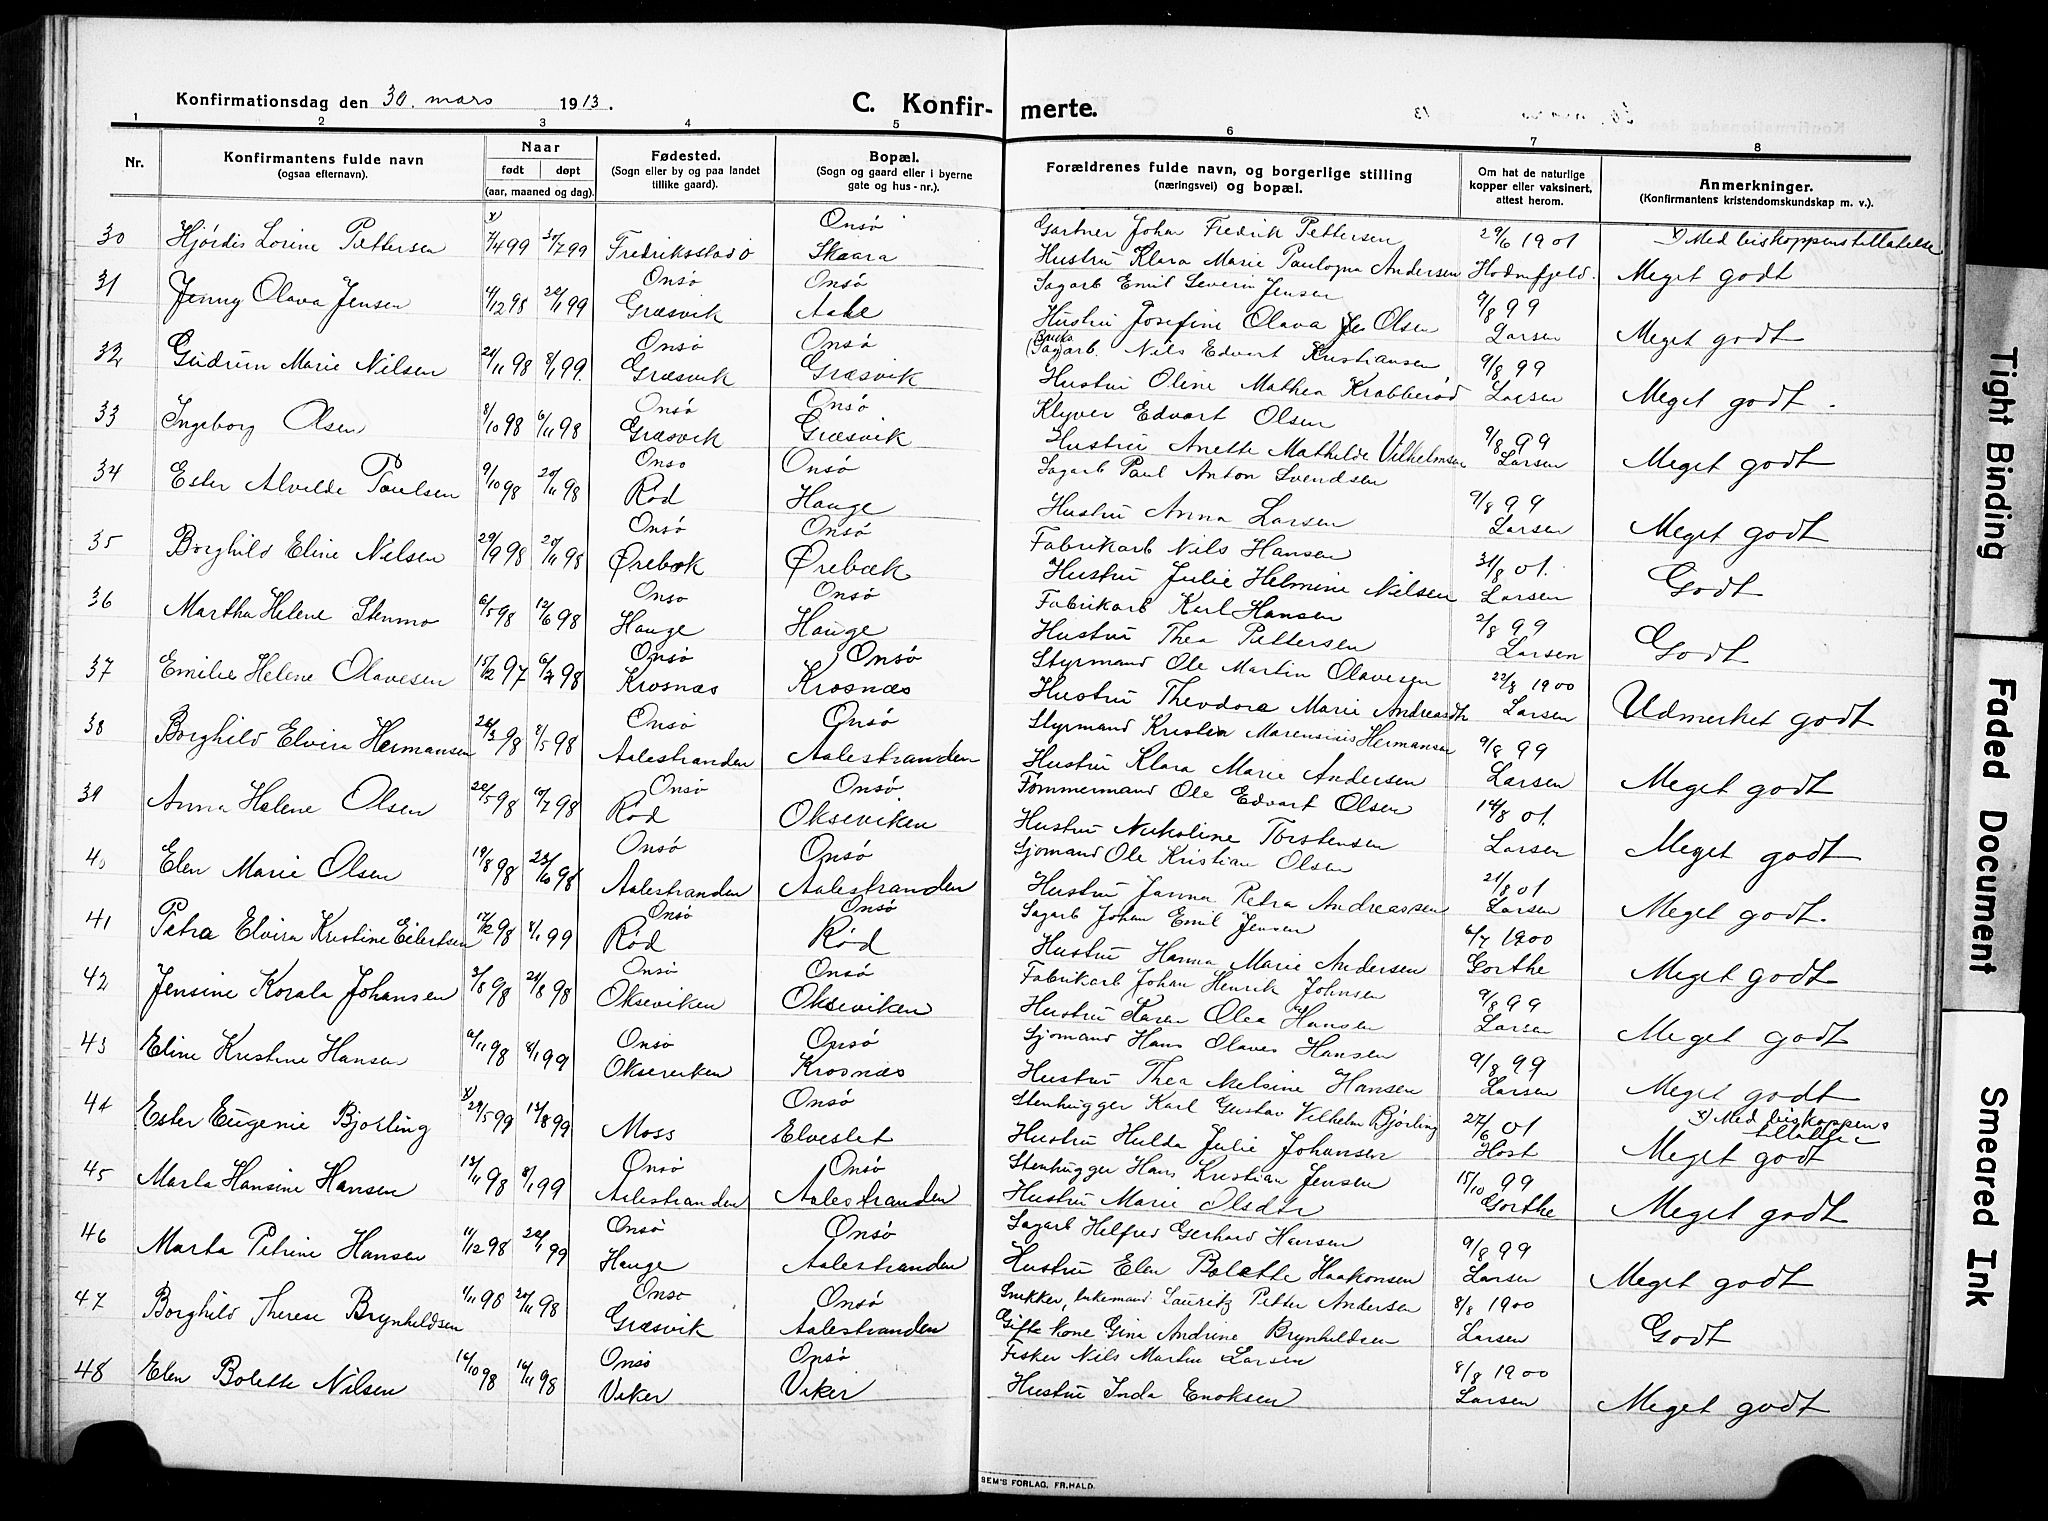 Konfirmationsdag den 30. mars 1913.
C. Konfir-merte.
1 2 3 4 5 6 7 8
Nr.
Konfirmantens fulde navn
(ogsaa efternavn).
Naar
født døpt
(aar, maaned og dag).
Fødested.
(Sogn eller by og paa landet
tillike gaard).
Bopæl.
(Sogn og gaard eller i byerne
gate og hus-nr.).
Forældrenes fulde navn, og borgerlige stilling
(næringsvei) og bopæl.
Om hat de naturlige
kopper eller vaksinert,
attest herom.
Anmerkninger.
(Konfirmantens kristendomskundskap m. v.).
30 Hjørdis Lovine Pettersen x) 7/4 99 30/7 99 Fredriksstad Onsø Skaara
Gartner Johan Fredrik Pettersen 29/6 1901 x) Med biskoppens tillatelse
Hustru Klara Marie Paulogna Andersen Hodnefjeld. Meget godt
31 Jenny Olava Jensen 4/12 98 22/1 99 Onsø Græsvik Onsø Aale
Sagarb Emil Severin Jensen 9/8 99
Hustru Josefine Olava Olsen Larsen Meget godt
32 Gudrun Marie Nilsen 21/11 98 8/1 99. Onsø Græsvik Onsø Græsvik
Sagarb. Nils Edvart Kristiansen 9/8 99
Hustru Oline Mathea Krabberød Larsen Meget godt.
33 Ingeborg Olsen 8/10 98 6/11 98 Onsø Græsvik Onsø Græsvik
Klyver Edvart Olsen 9/8 99
Hustru Anette Mathilde Vilhelmsen Larsen Meget godt
34 Ester Alvilde Paulsen 9/10 98 20/11 98 Onsø Rød Onsø Hauge
Sagarb Paul Anton Svendsen 9/8 99
Hustru Anna Larsen Larsen Meget godt
35 Borghild Eline Nilsen 29/9 98 20/11 98 Onsø Ørebæk Onsø Ørebæk
Fabrikarb Nils Hansen 31/8 01.
Hustru Julie Helmine Nilsen Larsen Godt
36 Martha Helene Stenmo 6/5 98 12/6 98 Onsø Hauge Onsø Hauge
Fabrikarb Karl Hansen 2/8 99
Hustru Thea Pettersen Larsen Godt
37 Emilie Helene Olavesen 15/12 97 6/4 98 Onsø Krosnæs Onsø Krosnæs
Styrmand Ole Martin Olavesen 22/8 1900
Hustru Theodora Marie Andreasdtr Larsen Udmerket godt
38 Borghild Elvira Hermansen 26/3 98 8/5 98 Onsø Aalestranden Onsø Aalestranden
Styrmand Kristian Marensius Hermansen 9/8 99
Hustru Klara Marie Andersen Larsen Meget godt
39 Anna Helene Olsen 22/5 98 10/7 98 Onsø Rød Onsø Okseviken
Tømmermand Ole Edvart Olsen 14/8 01.
Hustru Nikoline Torstensen Larsen Meget godt
40 Elen Marie Olsen 19/8 98 23/10 98 Onsø Aalestranden Onsø Aalestranden
Sjømand Ole Kristian Olsen 21/8 01
Hustru Janna Petra Andreassen Larsen Meget godt.
41 Petra Elvira Kristine Eilertsen 17/12 98 8/1 99 Onsø Rød Onsø Rød
Sagarb Johan Emil Jensen 6/7 1900
Hustru Hanna Marie Andersen Gorthe Meget godt
42 Jensine Korala Johansen 3/8 98 21/8 98 Onsø Okseviken Onsø Okseviken
Fabrikarb Johan Henrik Johnsen 9/8 99
Hustru Karen Olea Hansen Larsen Meget godt
43 Eline Kristine Hansen 6/11 98 8/1 99 Onsø Okseviken Onsø Krosnæs
Sjømand Hans Olaves Hansen 9/8 99
Hustru Thea Nelsine Hansen Larsen Meget godt
44 Ester Eugenie Bjørling x) 29/5 99 13/8 99 Moss Onsø Elveslet
Stenhugger Karl Gustav Vilhelm Bjørling 27/6 01 x) Med biskoppens tillatelse
Hustru Hulda Julie Johansen Høst Meget godt
45 Marta Hansine Hansen 13/11 98 8/1 99 Onsø Aalestranden Onsø Aalestranden
Stenhugger Hans Kristian Jensen 15/10 99
Hustru Marie Olsdtr Gorthe Meget godt
46 Marta Petrine Hansen 11/12 98 22/1 99 Onsø Hauge Onsø Aalestranden
Sagarb Helfred Gerhard Hansen 9/8 99
Hustru Elen Bolette Haakonsen Larsen Meget godt
47 Borghild Therese Brynhildsen 1/11 98 20/11 98 Onsø Græsvik Onsø Aalestranden
Snekker, enkemand Lauritz Petter Andersen 8/8 1900
Gifte kone Gina Andrine Brynhildsen Larsen Godt
48 Elen Bolette Nilsen 16/10 98 16/11 98 Onsø Viker Onsø Viker
Fisker Nils Martin Larsen 8/8 1900
Hustru Inda Enoksen Larsen Meget godt
SEM'S FORLAG, FR.HALD.
Tight Binding
Faded Document
Smeared Ink